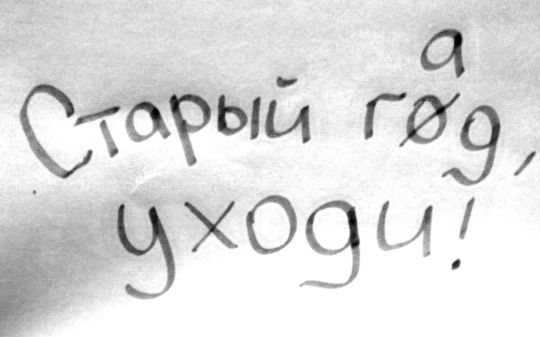 Старый гад,
уходи!